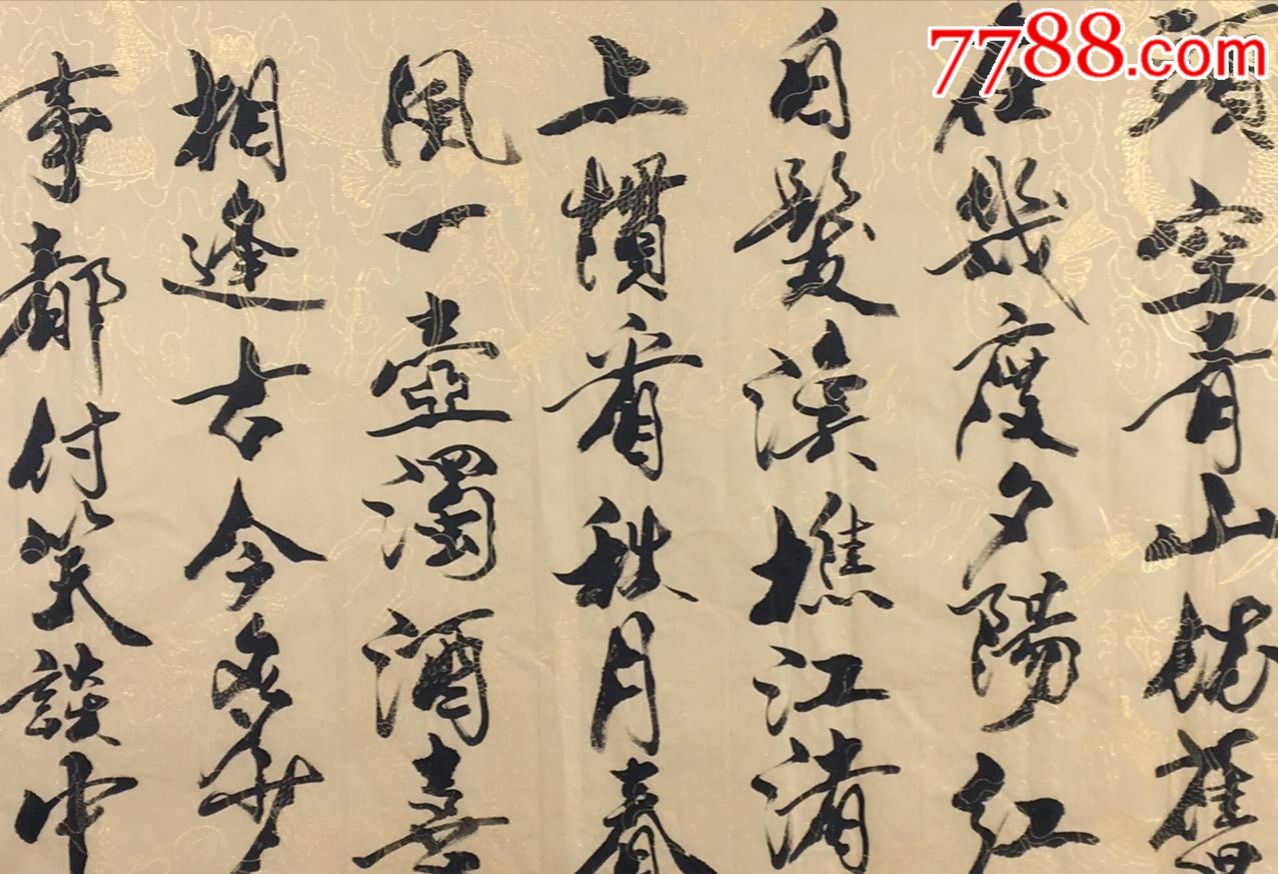 7788.com
頭空青山依舊
在幾度夕陽紅
白髮漁樵江渚
上慣看秋月春
風一壺濁酒喜
相逢古今多少
事都付笑談中